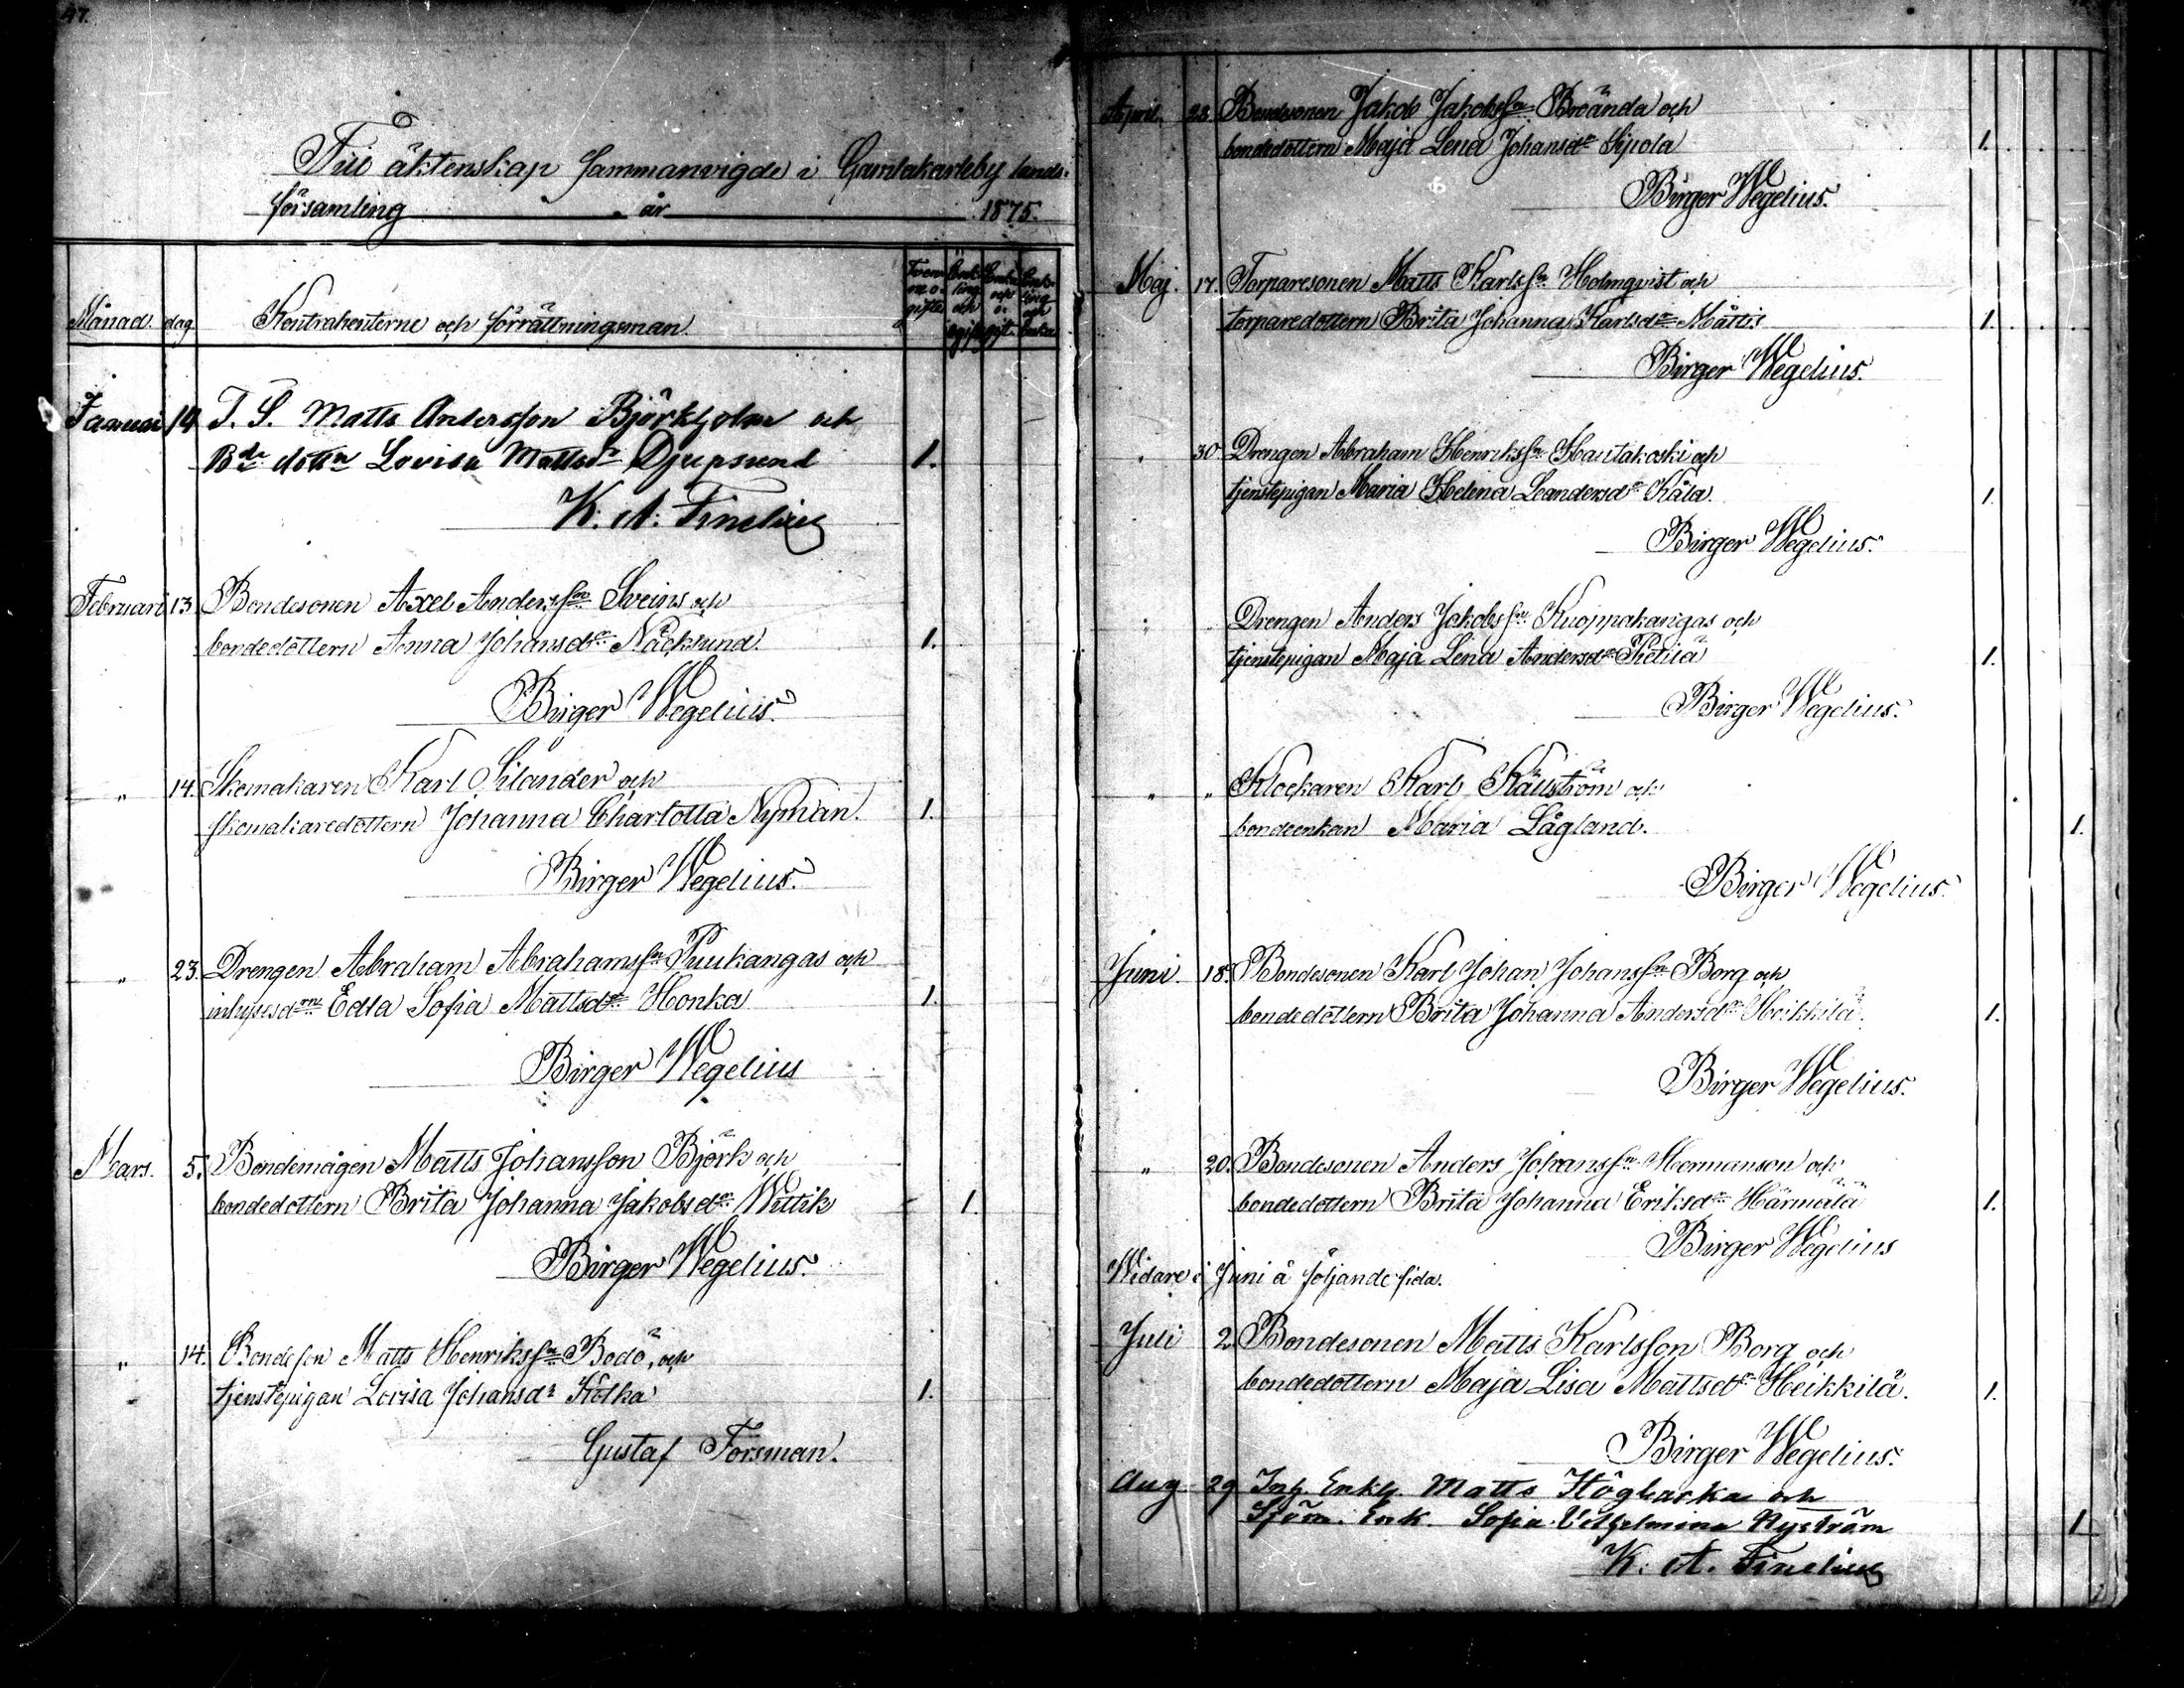 47.
Till äktenskap sammanvigde i Gamlakarleby lands-
församling år 1875.
Månad. dag. Kontrahenterne och förrättningsman.
Januari 19 T. S. Matts Andersson Björkholm och
Bde dottn Lovisa Mattsdr Djupsund 1.
K. A. Finelius
Februari 13. Bondesonen Axel Anderssn Sveins och
bondedottern Anna Johansdr Näcksund. 1.
Birger Wegelius.
" 14. Skomakaren Karl Silander och
skomakaredottern Johanna Charlotta Nyman. 1.
Birger Wegelius.
" 23. Drengen Abraham Abrahamssn Puukangas och
inhysesdrn Edla Sofia Mattsdr Honka 1.
Birger Wegelius
Mars. 5. Bondemågen Matts Johansson Björk och
bondedottern Brita Johanna Jakobsdr Wittik 1.
Birger Wegelius.
" 14. Bondeson Matts Henrikssn Bodö, och
tjenstepigan Lovisa Johansdr Kotka 1.
Gustaf Forsman.
April. 23. Bondesonen Jakob Jakobssn Broända och
bondedottern Maja Lena Johansdr Sipola 1.
Birger Wegelius.
Maj. 17. Torparesonen Matts Karlssn Holmqvist och
torparedottern Brita Johanna Karlsdr Mattis 1.
Birger Wegelius.
" 30. Drengen Abraham Henrikssn Hautakoski och
tjenstepigan Maria Helena Leandersdr Kåla. 1.
Birger Wegelius.
" Drengen Anders Jakobssn Kuoppakangas och
tjenstepigan Maja Lena Andersdr 1.
Birger Wegelius.
" " Klockaren Karl Källström och
bondeenkan Maria Lågland. 1.
Birger Wegelius.
Juni. 18. Bondesonen Karl Johan Johanssn Borg och
bondedottern Brita Johanna Andersdr Heikkilä. 1.
Birger Wegelius.
" 20. Bondesonen Anders Johanssn Hermanson och
bondedottern Brita Johanna Eriksdr Härmälä 1.
Birger Wegelius
Widare i Juni å följande sida.
Juli 2. Bondesonen Matts Karlsson Borg och
bondedottern Maja Lisa Mattsdr Heikkilä. 1.
Birger Wegelius.
Aug 29 Inh. Enkl. Matts Högbacka och
Sjöm. Enk. Sofia Vilhelmina Nyström 1
K. A. Finelius